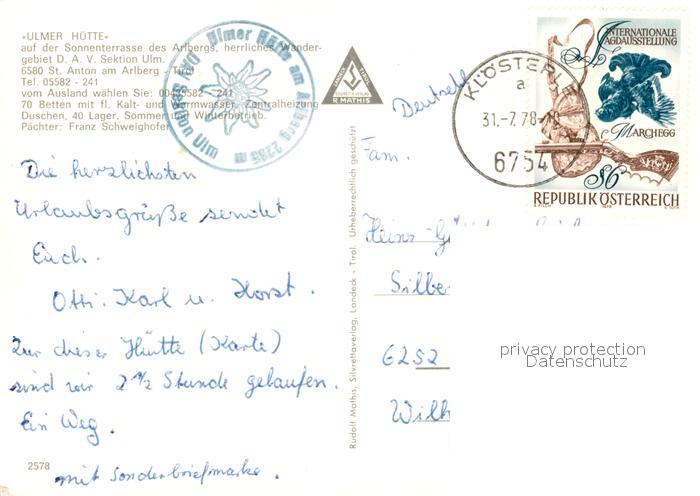 »ULMER HÜTTE«
auf der Sonnenterrasse des Arlbergs, herrliches Wander-
gebiet D. A. V. Sektion Ulm.
6580 St. Anton am Arlberg - Tirol
Tel. 05582 - 241
vom Ausland wählen Sie: 0043 5582 - 241
70 Betten mit fl. Kalt- und Warmwasser, Zentralheizung
Duschen, 40 Lager, Sommer und Winterbetrieb.
Pächter: Franz Schweighofer
Ulmer Hütte am Arlberg 2285 m
Sektion Ulm
Die herzlichsten
Urlaubsgrüße sendet
Euch.
Otti. Karl u. Horst.
Zur dieser Hütte (Karte)
sind wir 2 1/2 Stunde gelaufen.
Ein Weg.
mit Sonderbriefmarke.
2578
R. MATHIS
Rudolf Mathis, Silvrettaverlag, Landeck - Tirol. Urheberrechtlich geschützt
Deutschl.
Fam.
Heinz
Silbe
6252
Wilh
KLÖSTERLE
a
31.-7.78-18
6754
INTERNATIONALE
JAGDAUSSTELLUNG
MARCHEGG
S6
REPUBLIK ÖSTERREICH
privacy protection
Datenschutz